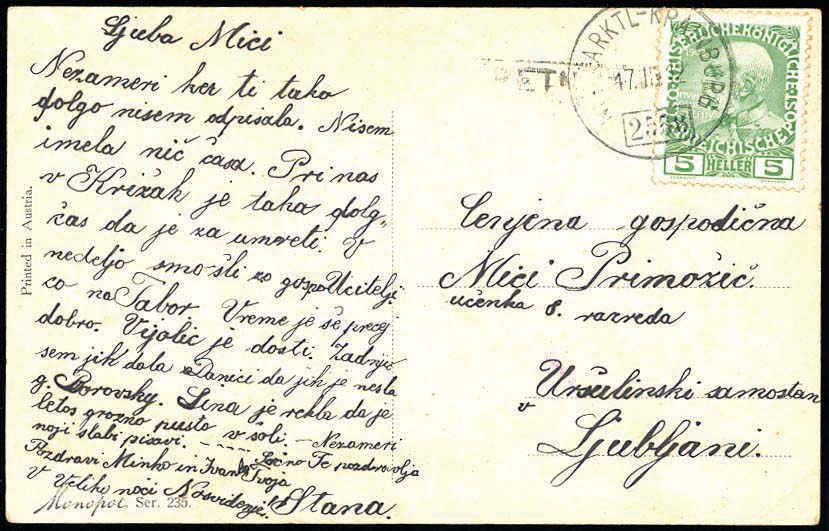 Ljuba Mići
Nezameri ker ti tako
dolgo nisem odpisala. Nisem
imela nič časa. Pri nas
v Križah je tako dolg
čas da je za umreti. V
nedeljo smo šli z gospo Učitelji
co na Tabor. Vreme je še precej
dobro. Vijolic je dosti. Zadnjič
sem jih dala Danici da jih je nesla
g. Borovsky. Lina je rekla da je
letos grozno pusto v šoli. – Nezameri
moji slabi pisavi. Ločno Te pozdravlja
Pozdravi Minko in Ivanko Tvoja
V Veliko noči Nasvidenje! Stana.
Monopol Ser. 235.
Printed in Austria.
MARKTL-KRAIBURG
2558
5 HELLER 5
Cenjena gospodična
Mići Primožič.
učenka 8. razreda
Uršulinski samostan
v
Ljubljani.